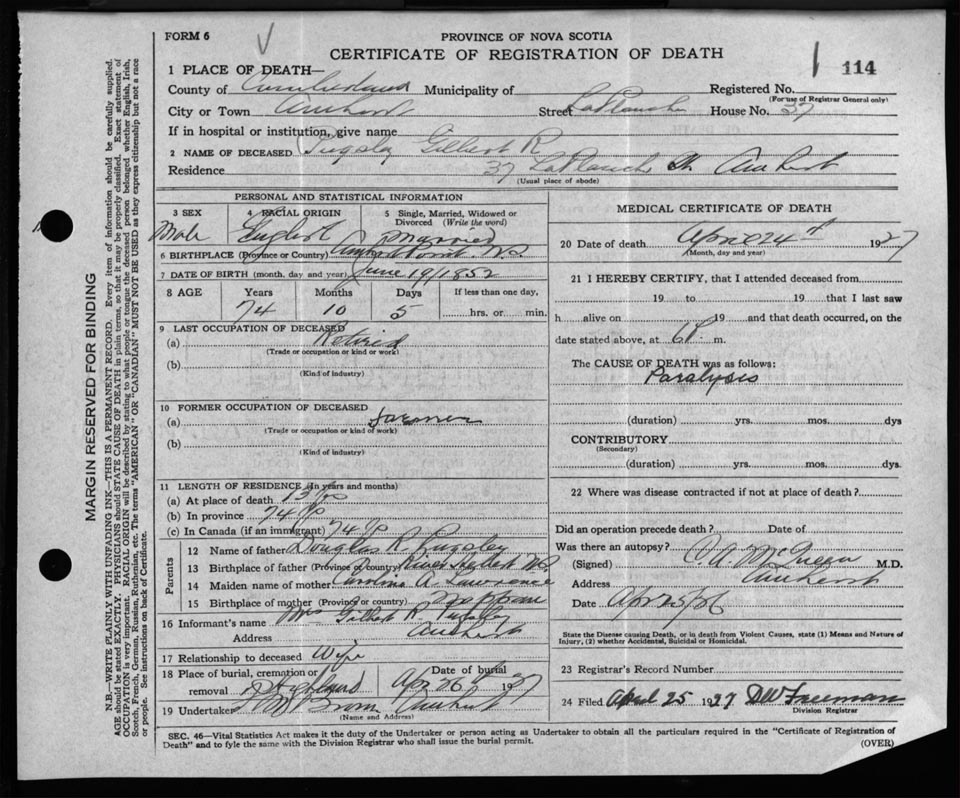 FORM 6
PROVINCE OF NOVA SCOTIA
CERTIFICATE OF REGISTRATION OF DEATH
114
1 PLACE OF DEATH—
County of Cumberland Municipality of Registered No.
(For use of Registrar General only)
City or Town Amherst Street LaPlanche House No. 37
If in hospital or institution, give name
2 NAME OF DECEASED Pugsley Gilbert R
Residence 37 LaPlanche St Amherst
(Usual place of abode)
PERSONAL AND STATISTICAL INFORMATION
3 SEX 4 RACIAL ORIGIN 5 Single, Married, Widowed or Divorced (Write the word)
Male English Married
6 BIRTHPLACE (Province or Country) Amherst Point N.S.
7 DATE OF BIRTH (month, day and year) June 19/1852
8 AGE Years Months Days If less than one day,
74 10 5 hrs. or min.
9 LAST OCCUPATION OF DECEASED
(a) Retired
(Trade or occupation or kind or work)
(b)
(Kind of industry)
10 FORMER OCCUPATION OF DECEASED
(a) Farmer
(Trade or occupation or kind of work)
(b)
(Kind of industry)
11 LENGTH OF RESIDENCE (In years and months)
(a) At place of death 13 yrs
(b) In province 74 yrs
(c) In Canada (if an immigrant) 74 yrs
Parents
12 Name of father Douglas R. Pugsley
13 Birthplace of father (Province or country) River Hebert N.S.
14 Maiden name of mother Caroline A. Lawrence
15 Birthplace of mother (Province or country) Nappan
16 Informant's name Mrs Gilbert R Pugsley
Address Amherst
17 Relationship to deceased Wife
18 Place of burial, cremation or removal Highland
Date of burial Apr 26th 1927
19 Undertaker Brown Amherst
(Name and Address)
MEDICAL CERTIFICATE OF DEATH
20 Date of death April 24th 1927
(Month, day and year)
21 I HEREBY CERTIFY, that I attended deceased from
19 to 19 that I last saw
h alive on 19 and that death occurred, on the
date stated above, at 6 P. m.
The CAUSE OF DEATH was as follows:
Paralysis
(duration) yrs. mos. dys
CONTRIBUTORY
(Secondary)
(duration) yrs. mos. dys.
22 Where was disease contracted if not at place of death?
Did an operation precede death? Date of
Was there an autopsy?
(Signed) C. A. McQueen M.D.
Address Amherst
Date Apr 25/26
State the Disease causing Death, or in death from Violent Causes, state (1) Means and Nature of
Injury, (2) whether Accidental, Suicidal or Homicidal.
23 Registrar's Record Number
24 Filed April 25 1927 DW Freeman
Division Registrar
SEC. 46—Vital Statistics Act makes it the duty of the Undertaker or person acting as Undertaker to obtain all the particulars required in the "Certificate of Registration of
Death" and to fyle the same with the Division Registrar who shall issue the burial permit.
(OVER)
MARGIN RESERVED FOR BINDING
N.B.—WRITE PLAINLY WITH UNFADING INK—THIS IS A PERMANENT RECORD. Every item of information should be carefully supplied.
AGE should be stated EXACTLY. PHYSICIANS should STATE CAUSE OF DEATH in plain terms, so that it may be properly classified. Exact statement of
OCCUPATION is very important. RACIAL ORIGIN will be described by stating to what people or tongue the deceased person belonged whether English, Irish,
Scotch, French, German, Russian, Ruthenian, etc. The terms "AMERICAN" OR "CANADIAN" MUST NOT BE USED as they express citizenship but not a race
or people. See instructions on back of Certificate.